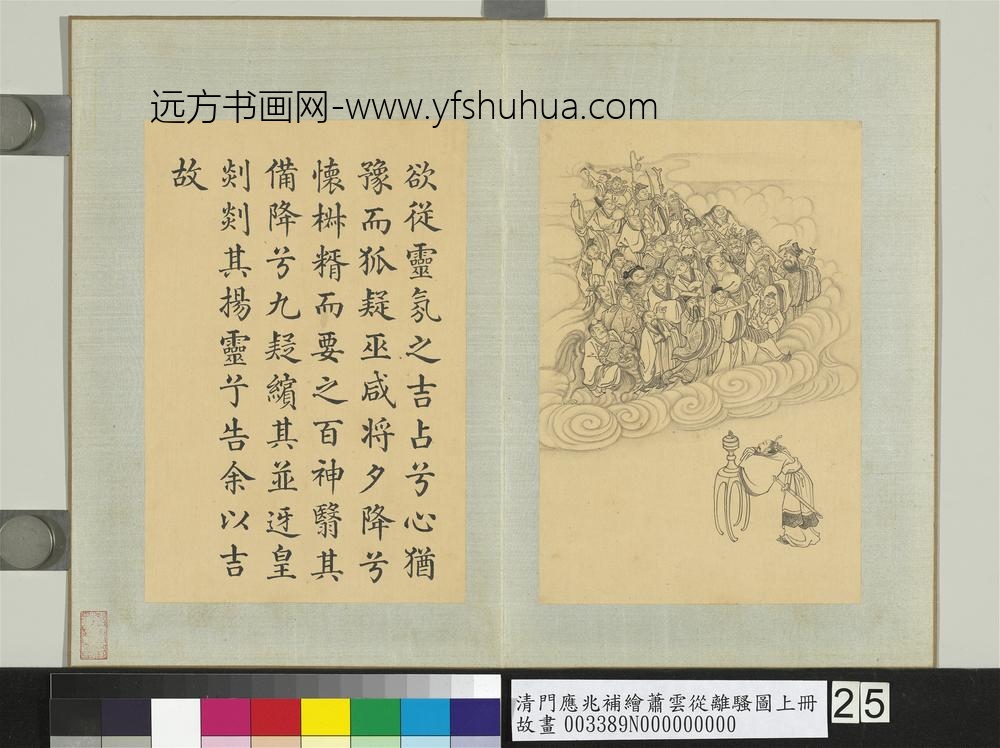 远方书画网-www.yfshuhua.com
欲從靈氛之吉占兮心猶
豫而狐疑巫咸将夕降兮
懐椒糈而要之百神翳其
備降兮九疑繽其並迓皇
剡剡其揚靈兮告余以吉
故
清門應兆補繪蕭雲從離騷圖上冊
故畫 003389N000000000
25